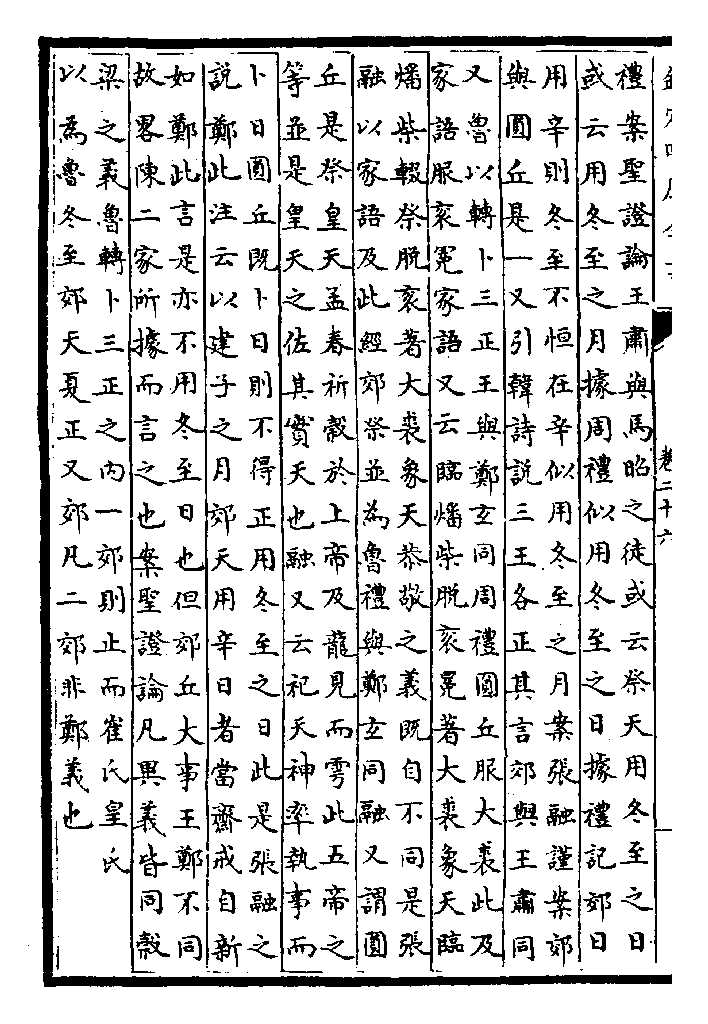 卷二十六
禮案聖證論王肅與馬昭之徒或云祭天用冬至之日
或云用冬至之月據周禮似用冬至之日據禮記郊日
用辛則冬至不恒在辛似用冬至之月案張融謹案郊
與圓丘是一又引韓詩說三王各正其言郊與王肅同
又魯以轉卜三正王與鄭玄同周禮圓丘服大裘此及
家語服衮冕家語又云臨燔柴脫衮冕著大裘象天臨
燔柴輟祭脫衮著大裘象天恭敬之義既自不同是張
融以家語及此經郊祭並為魯禮與鄭玄同融又謂圓
丘是祭皇天孟春祈榖於上帝及龍見而雩此五帝之
等並是皇天之佐其實天也融又云祀天神率執事而
卜日圓丘既卜日則不得正用冬至之日此是張融之
說鄭此注云以建子之月郊天用辛日者當齋戒自新
如鄭此言是亦不用冬至日也但郊丘大事王鄭不同
故畧陳二家所據而言之也案聖證論凡異義皆同榖
梁之義魯轉卜三正之内一郊則止而崔氏皇氏
以為魯冬至郊天夏正又郊凡二郊非鄭義也